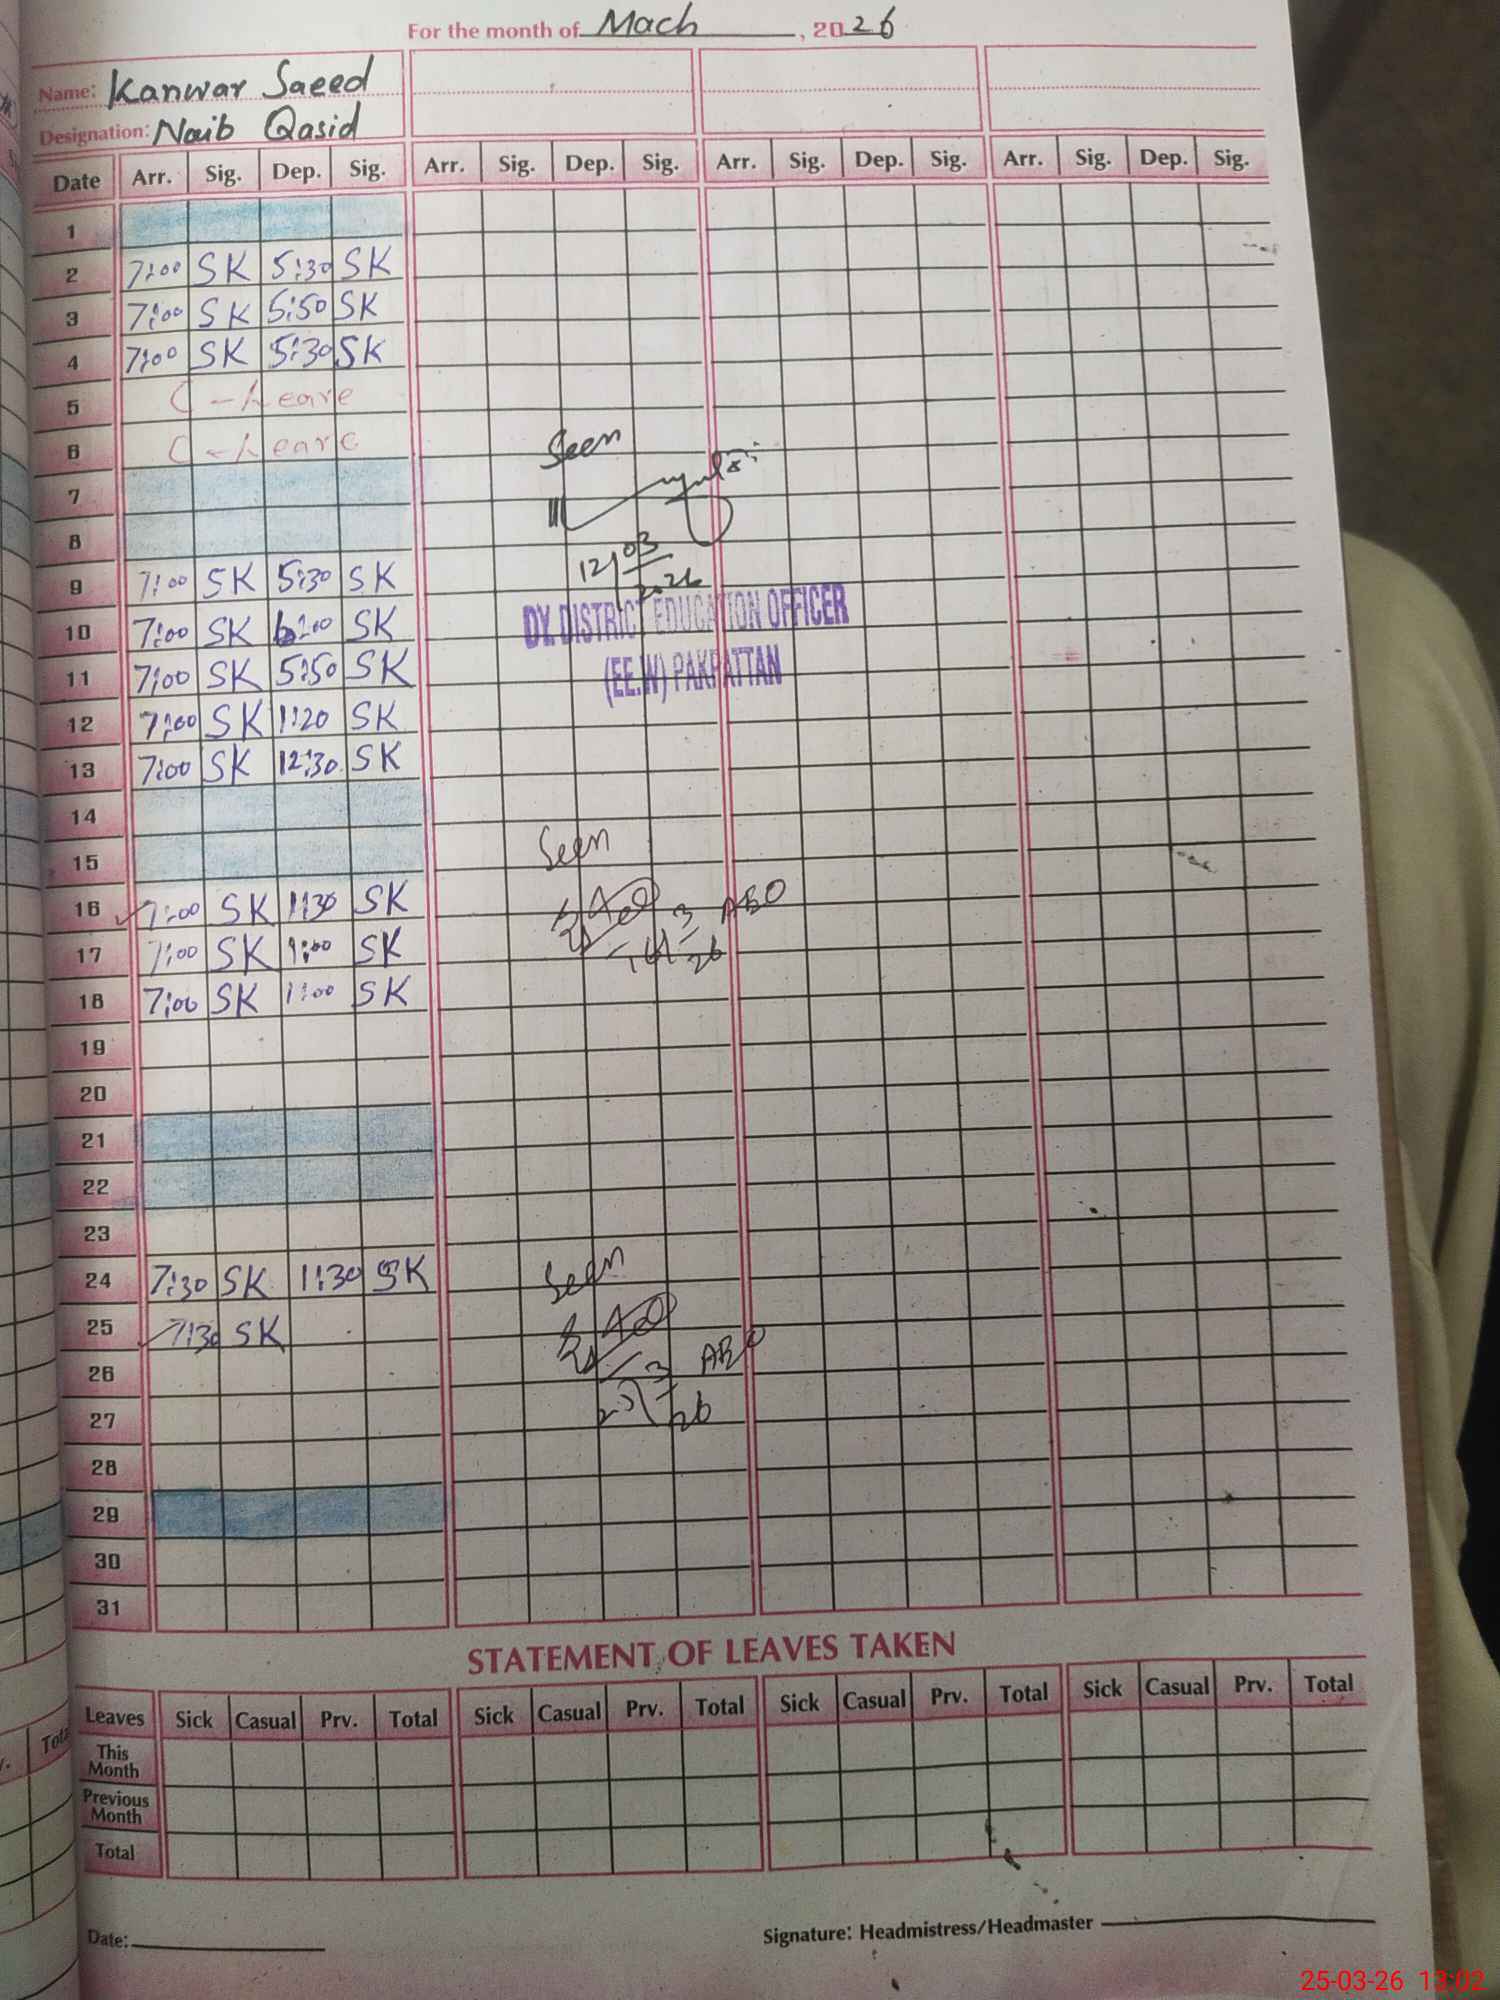 For the month of Mach, 2026
Name: Kanwar Saeed
Designation: Naib Qasid
Date Arr. Sig. Dep. Sig. Arr. Sig. Dep. Sig. Arr. Sig. Dep. Sig. Arr. Sig. Dep. Sig.
1
2 7:00 SK 5:30 SK
3 7:00 SK 5:50 SK
4 7:00 SK 5:30 SK
5 C-Leave
6 C-Leave
Seen
7
8
12/03/2026
9 7:00 SK 5:30 SK
DY. DISTRICT EDUCATION OFFICER
10 7:00 SK 6:00 SK
(EE.W) PAKPATTAN
11 7:00 SK 5:50 SK
12 7:00 SK 1:20 SK
13 7:00 SK 12:30 SK
14
15
Seen
16 7:00 SK 1:30 SK
17 7:00 SK 1:00 SK
18 7:00 SK 1:00 SK
19
20
21
22
23
24 7:30 SK 1:30 SK
Seen
25 7:30 SK
26
27
28
29
30
31
STATEMENT OF LEAVES TAKEN
Leaves Sick Casual Prv. Total Sick Casual Prv. Total Sick Casual Prv. Total Sick Casual Prv. Total
This
Month
Previous
Month
Total
Date:
Signature: Headmistress/Headmaster
25-03-26 13:02